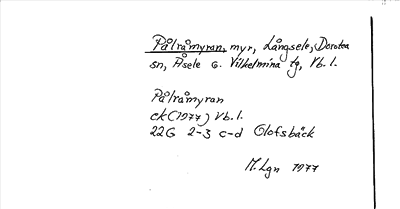 Pålråmyran, myr, Långsele, Dorotea
sn, Åsele o. Vilhelmina tg, Vb. l.
Pålråmyran
ek (1977) Vb. l.
22G 2-3 c-d Olofsbäck
M. Lgn 1977